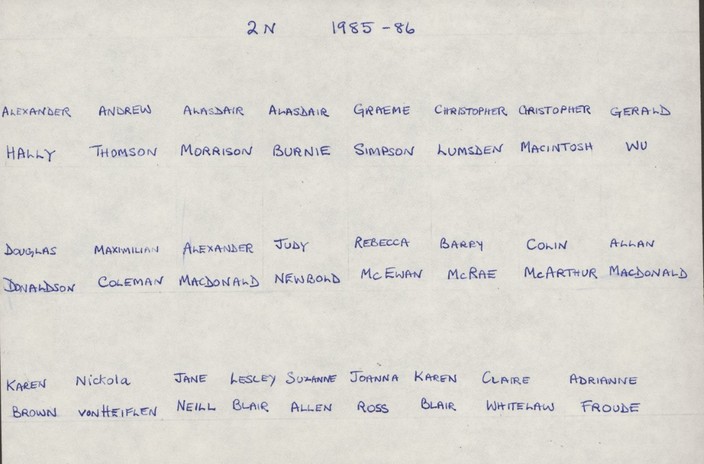 2N 1985-86
ALEXANDER ANDREW ALASDAIR ALASDAIR GRAEME CHRISTOPHER CHRISTOPHER GERALD
HALLY THOMSON MORRISON BURNIE SIMPSON LUMSDEN MACINTOSH WU
DOUGLAS MAXIMILIAN ALEXANDER JUDY REBECCA BARRY COLIN ALLAN
DONALDSON COLEMAN MACDONALD NEWBOLD McEWAN McRAE McARTHUR MACDONALD
KAREN Nickola JANE LESLEY SUZANNE JOANNA KAREN CLAIRE ADRIANNE
BROWN vonHEIFLEN NEILL BLAIR ALLEN ROSS BLAIR WHITELAW FROUDE